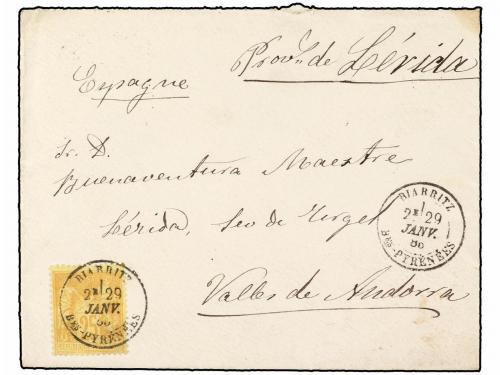 Provª de Lérida
Espagne
Sr. D.
Buenaventura Maestre
Lérida, Seo de Urgel
Valles de Andorra
BIARRITZ
2E 29
JANV.
86
BSES-PYRÉNÉES
BIARRITZ
2E 29
JANV.
86
BSES-PYRÉNÉES
25